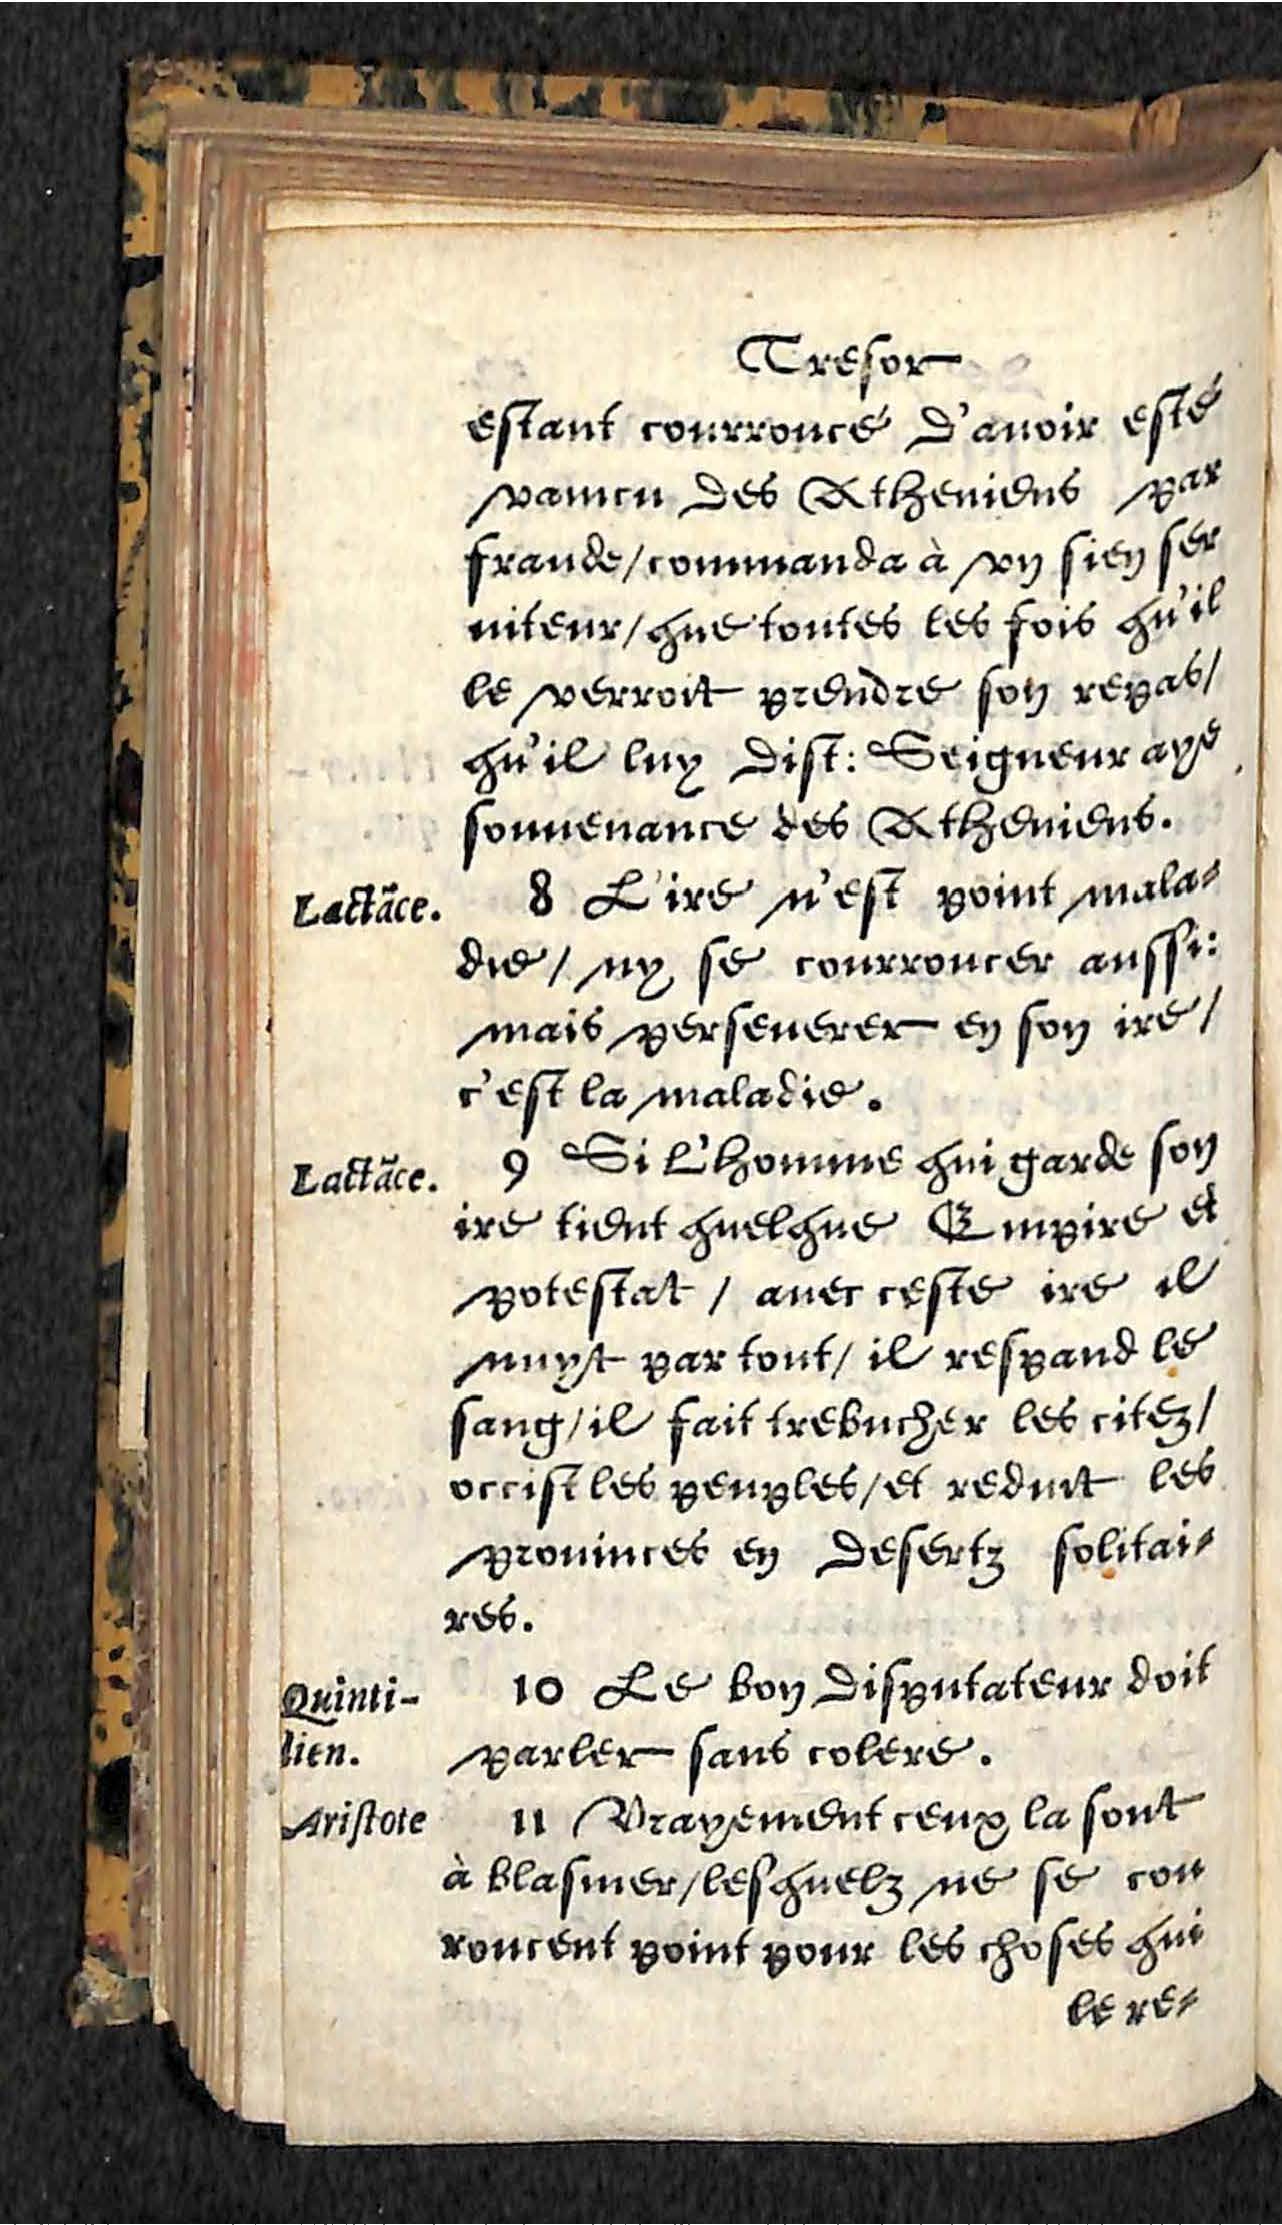 Tresor
estant courroucé d'auoir esté
vaincu des Atheniens par
fraude/commanda à vn sien ser
uiteur/que toutes les fois qu'il
le verroit prendre son repas/
qu'il luy dist: Seigneur aye
souuenance des Atheniens.
Lactãce.
8 L'ire n'est point mala-
die/ ny se courroucer aussi:
mais perseuerer en son ire/
c'est la maladie.
Lactãce.
9 Si l'homme qui garde son
ire tient quelque Empire et
potestat / auec ceste ire il
nuyt par tout/ il respand le
sang/il fait trebucher les citez/
occist les peuples/et reduit les
prouinces en desertz solitai-
res.
Quinti-
lien.
10 Le bon disputateur doit
parler sans colere.
Aristote
11 Vrayement ceux la sont
à blasmer/lesquelz ne se cou
roucent point pour les choses qui
le re-